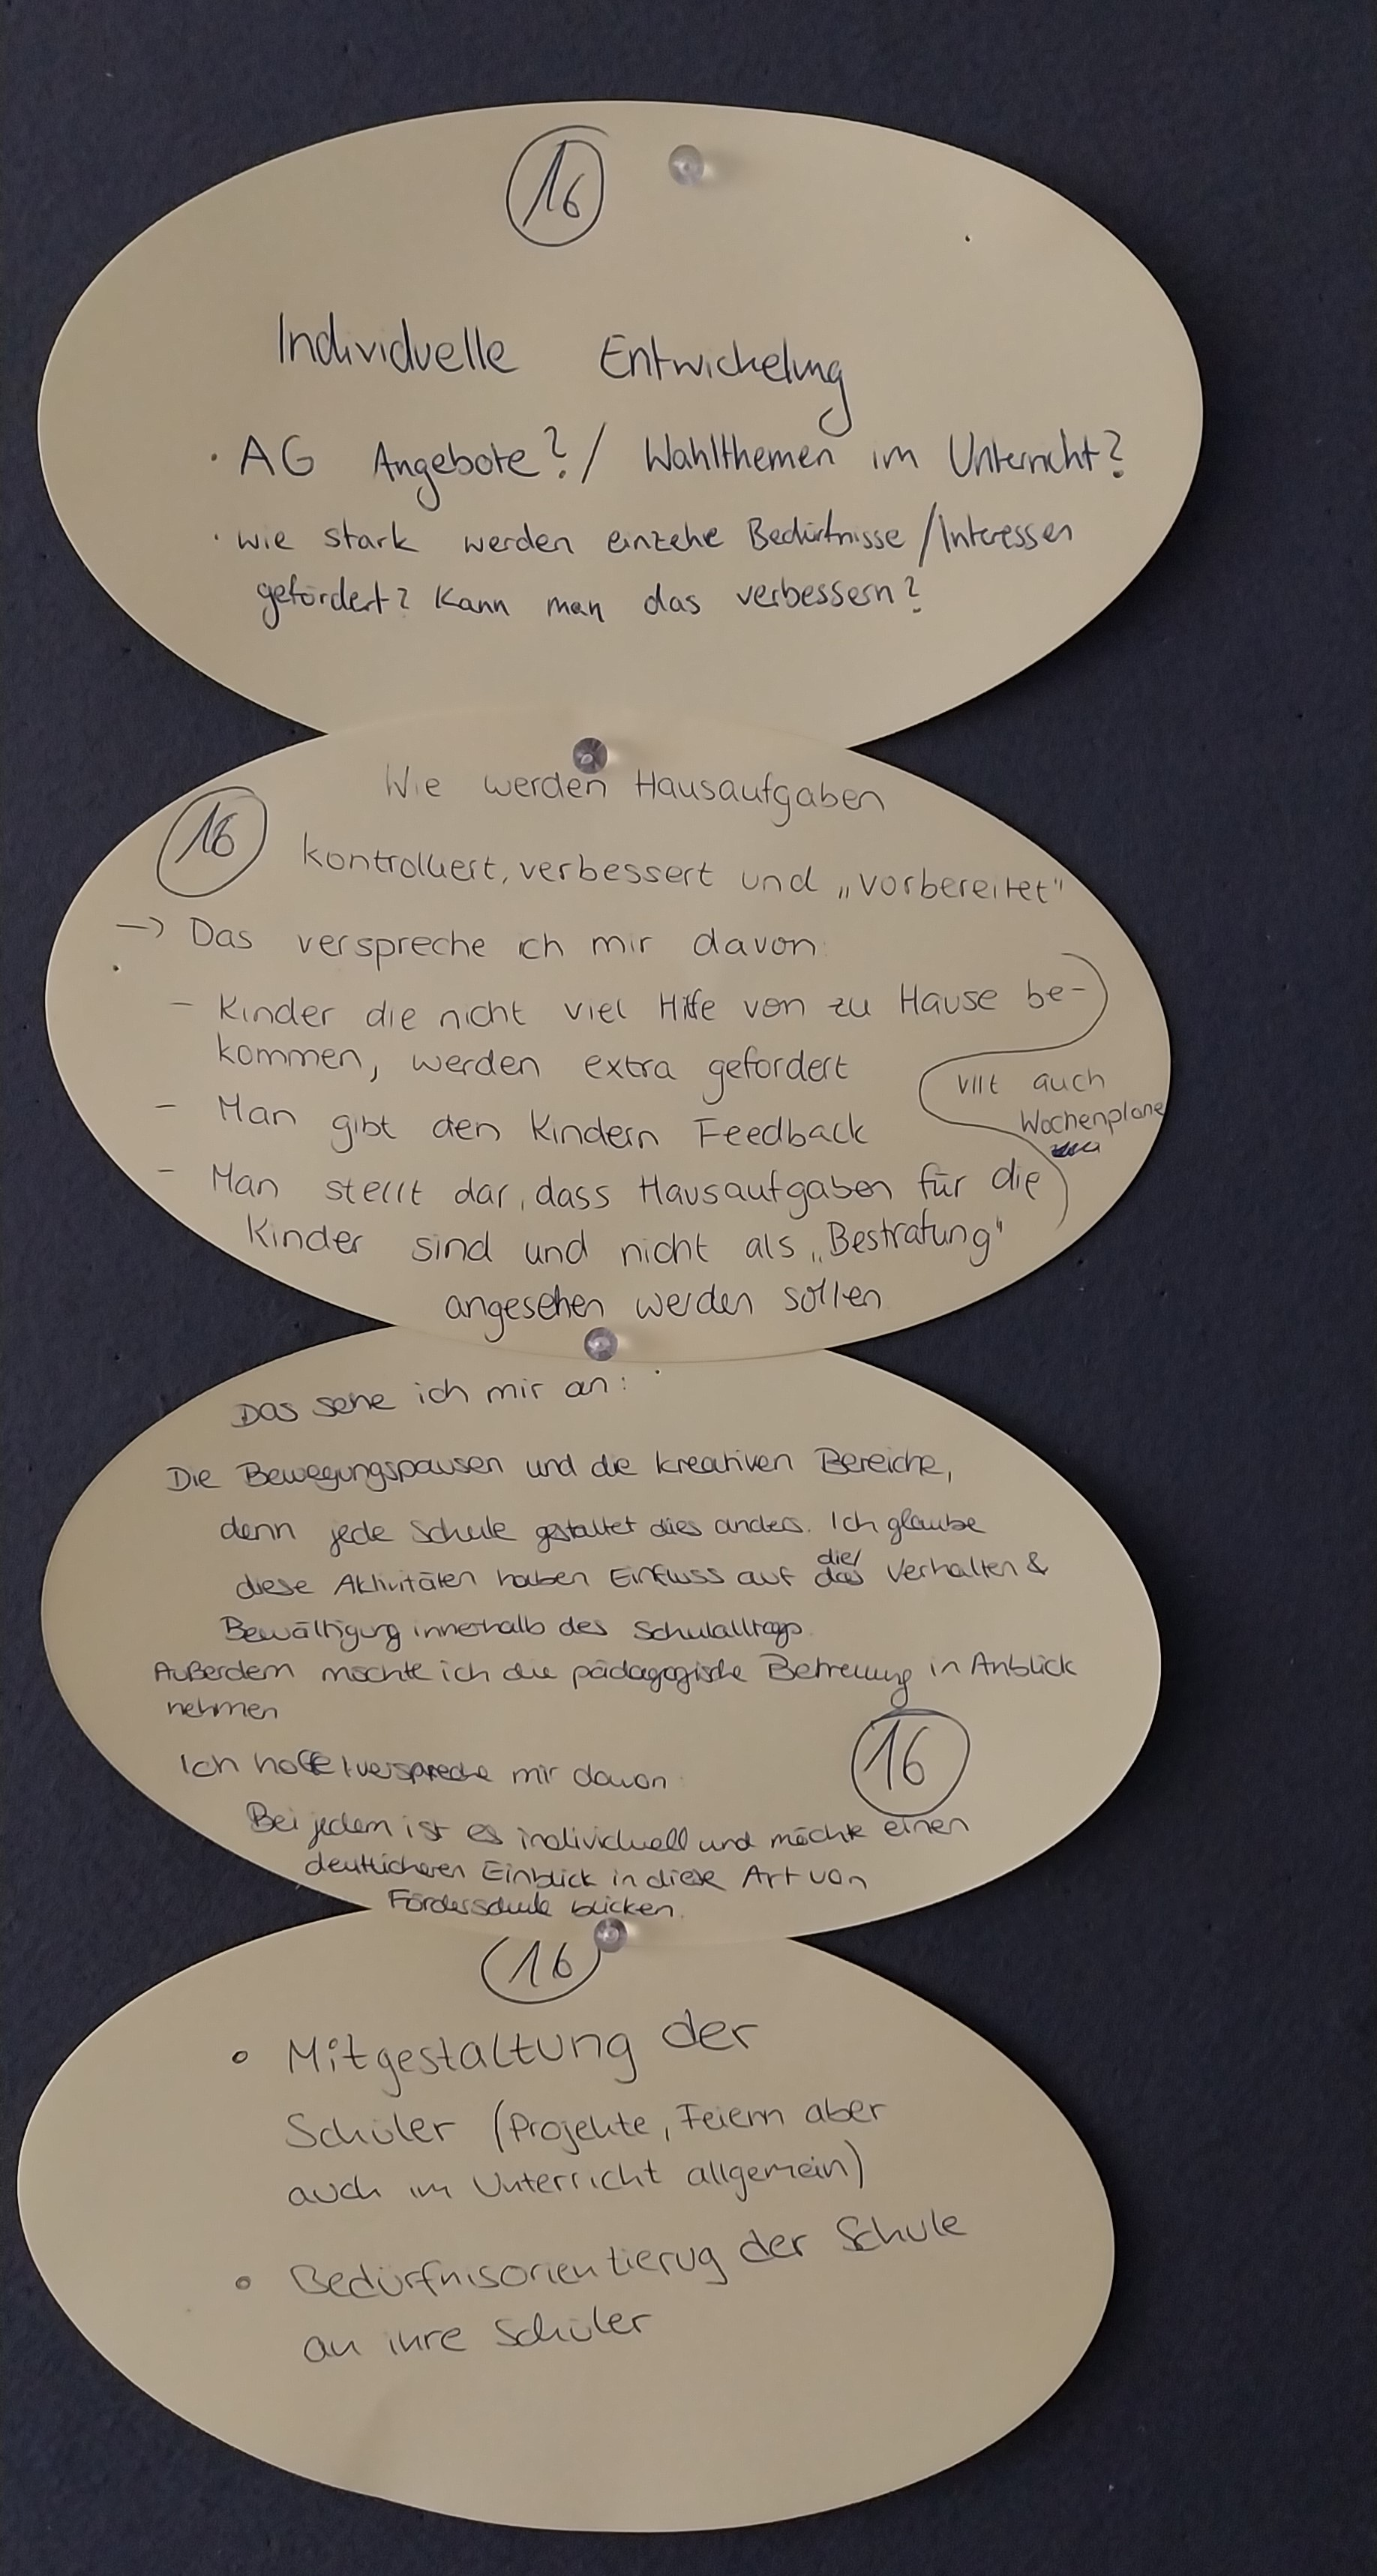 16
Individuelle Entwickelung
· AG Angebote? / Wahlthemen im Unterricht?
· wie stark werden einzelne Bedürfnisse / Interessen
gefördert? Kann man das verbessern?
Wie werden Hausaufgaben
16
kontrolliert, verbessert und „vorbereitet"
-> Das verspreche ich mir davon:
- Kinder die nicht viel Hilfe von zu Hause be-
kommen, werden extra gefördert
vllt auch
Wochenpläne
- Man gibt den Kindern Feedback
- Man stellt dar, dass Hausaufgaben für die
Kinder sind und nicht als „Bestrafung"
angesehen werden sollen
Das sehe ich mir an:
Die Bewegungspausen und die kreativen Bereiche,
denn jede Schule gestaltet dies anders. Ich glaube
diese Aktivitäten haben Einfluss auf das die/ Verhalten &
Bewältigung innerhalb des Schulalltags.
Außerdem möchte ich die pädagogische Betreuung in Anblick
nehmen
Ich hoffe / verspreche mir davon:
16
Bei jedem ist es individuell und möchte einen
deutlicheren Einblick in diese Art von
Förderschule blicken.
16
• Mitgestaltung der
Schüler (Projekte, Feiern aber
auch im Unterricht allgemein)
• Bedürfnisorientierug der Schule
an ihre Schüler